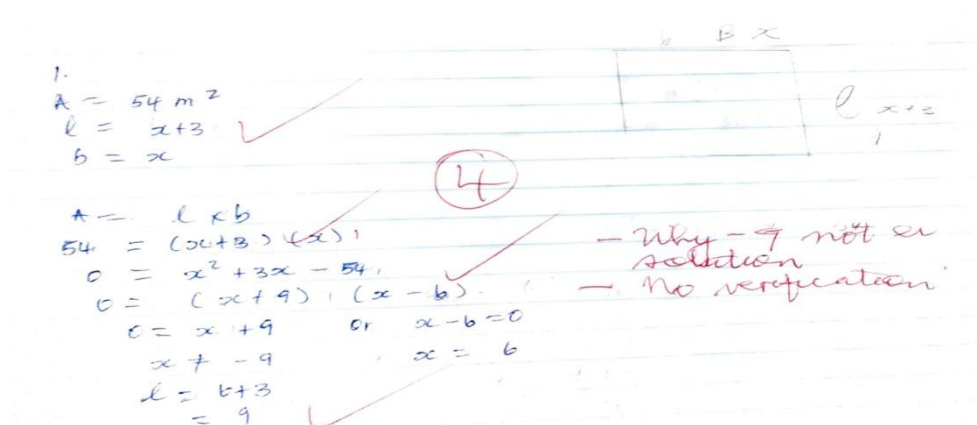 b B x
1.
A = 54 m²
l = x+3
b = x
l x+3
4
A = l × b
54 = (x+3)(x)
0 = x² + 3x - 54
0 = (x + 9) (x - 6)
0 = x + 9 or x - 6 = 0
x ≠ - 9 x = 6
l = 6+3
= 9
- Why -9 not a solution
- No verification